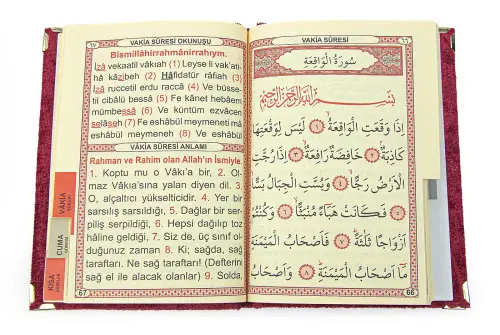 ٦٧ VAKİA SÛRESİ OKUNUŞU
Bismillâhirrahmânirrahıym.
İzâ vekaatil vâkıah (1) Leyse li vak'ati-
hâ kâzibeh (2) Hâfidatür râfiah (3)
İzâ ruccetil erdu raccâ (4) Ve büsse-
til cibâlü bessâ (5) Fe kânet hebâem
mümbessâ (6) Ve küntüm ezvâcen
selâseh (7) Fe eshâbül meymeneti mâ
eshâbül meymeneh (8) Ve eshâbül
VAKİA SÛRESİ ANLAMI
Rahman ve Rahim olan Allah'ın İsmiyle.
1. Koptu mu o Vâkı'a bir, 2. Ol-
maz Vâkıa'sına yalan diyen dil. 3.
O, alçaltıcı yükselticidir. 4. Yer bir
sarsılış sarsıldığı, 5. Dağlar bir ser-
piliş serpildiği, 6. Hepsi dağılıp toz
hâline geldiği. 7. Siz de, üç sınıf ol-
duğunuz zaman 8. Ki; sağda, sağ
taraftarı. Ne sağ taraftarı! (Defterini
sağ el ile alacak olanlar) 9. Solda,
67
VÂKIA
CUMA
KISA
VAKİA SÛRESİ ٦٦
سُورَةُ الْوَاقِعَةِ
بِسْمِ اللّٰهِ الرَّحْمٰنِ الرَّحِيمِ
اِذَا وَقَعَتِ الْوَاقِعَةُ ﴿١﴾ لَيْسَ لِوَقْعَتِهَا
كَاذِبَةٌ ﴿٢﴾ خَافِضَةٌ رَافِعَةٌ ﴿٣﴾ اِذَا رُجَّتِ
الْاَرْضُ رَجًّا ﴿٤﴾ وَبُسَّتِ الْجِبَالُ بَسًّا
﴿٥﴾ فَكَانَتْ هَبَٓاءً مُنْبَثًّا ﴿٦﴾ وَكُنْتُمْ
اَزْوَاجًا ثَلٰثَةً ﴿٧﴾ فَاَصْحَابُ الْمَيْمَنَةِ
مَٓا اَصْحَابُ الْمَيْمَنَةِ ﴿٨﴾ وَاَصْحَابُ
66